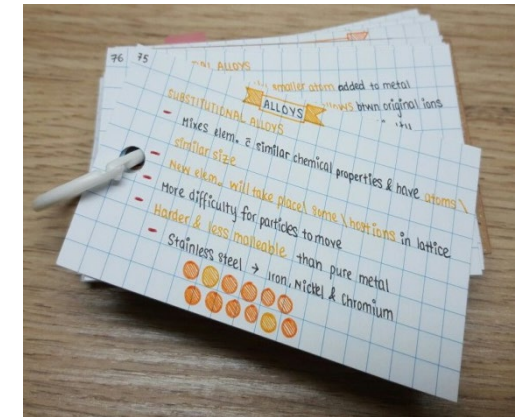 76 75
ALLOYS
smaller atom added to metal
btwn original ions
ALLOYS
SUBSTITUTIONAL ALLOYS
- Mixes elem. c̄ similar chemical properties & have atoms \
similar size
- New elem. will take place! some \ portions in lattice
- More difficulty for particles to move
- Harder & less malleable than pure metal
- Stainless steel → Iron, Nickel & Chromium